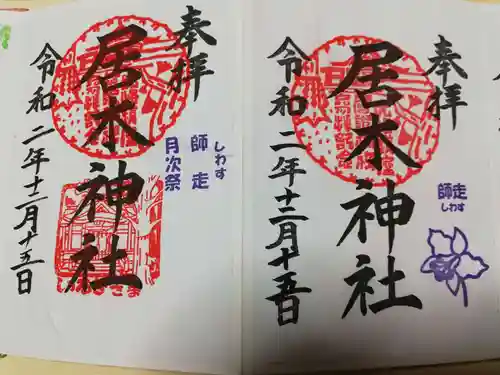 奉拝
居木神社
師走
しわす
月次祭
令和二年十二月十五日
奉拝
居木神社
師走
しわす
令和二年十二月十五日